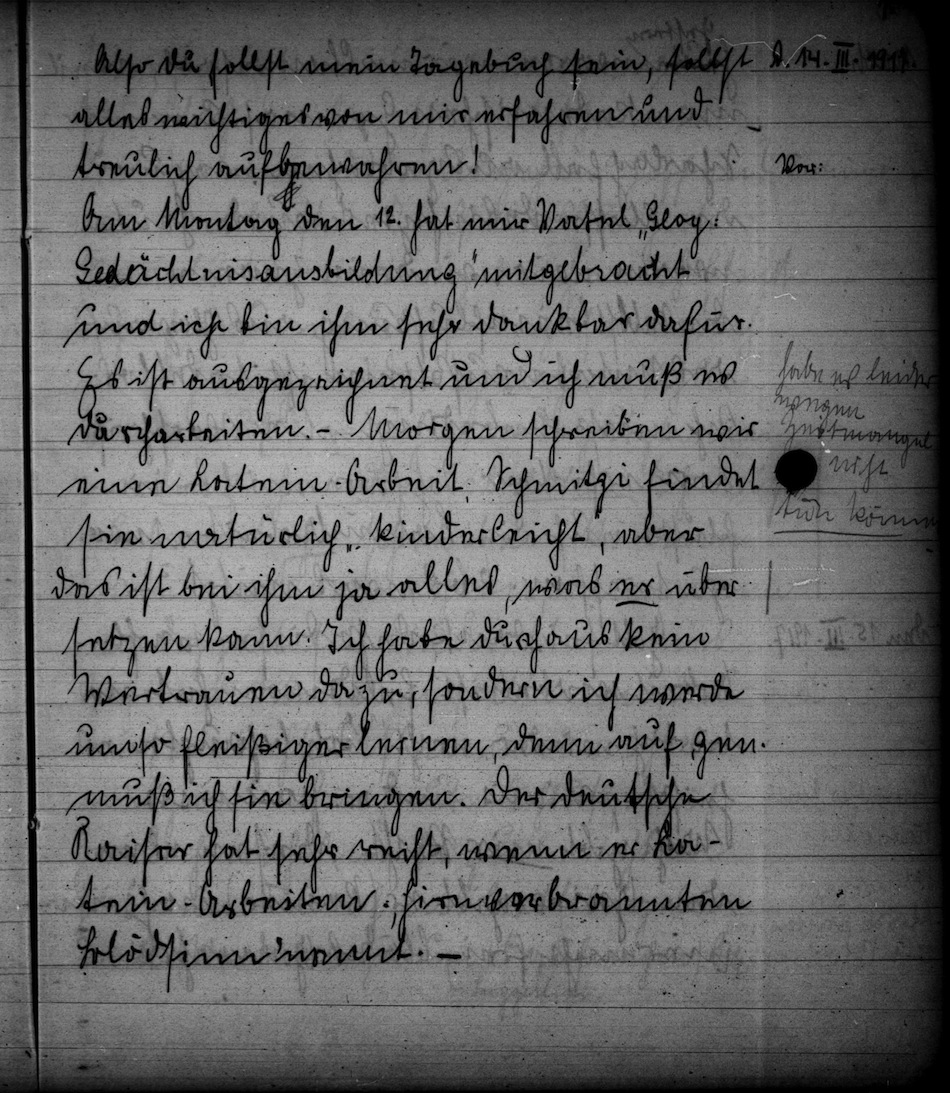 Also du sollst mein Tagebuch sein, sollst
alles wichtiges von mir erfahren und
treulich aufbewahren!
Am Montag den 12. hat mir Vatel „Geog:
Gedächtnisausbildung" mitgebracht
und ich bin ihm sehr dankbar dafür.
Es ist ausgezeichnet und ich muß es
durcharbeiten. – Morgen schreiben wir
eine Latein-Arbeit. Schmitzi findet
sie natürlich „kinderleicht", aber
das ist bei ihm ja alles, was er über
setzen kann. Ich habe durchaus kein
Vertrauen dazu, sondern ich werde
umso fleißiger lernen, denn auf gen.
muß ich sie bringen. Der deutsche
Kaiser hat sehr recht, wenn er La-
tein-Arbeiten „hirnverbrannten
Blödsinn" nennt. —
D. 14. III. 1917.
Vor:
habe es leider
wegen
Zeitmangel
nicht
tun können